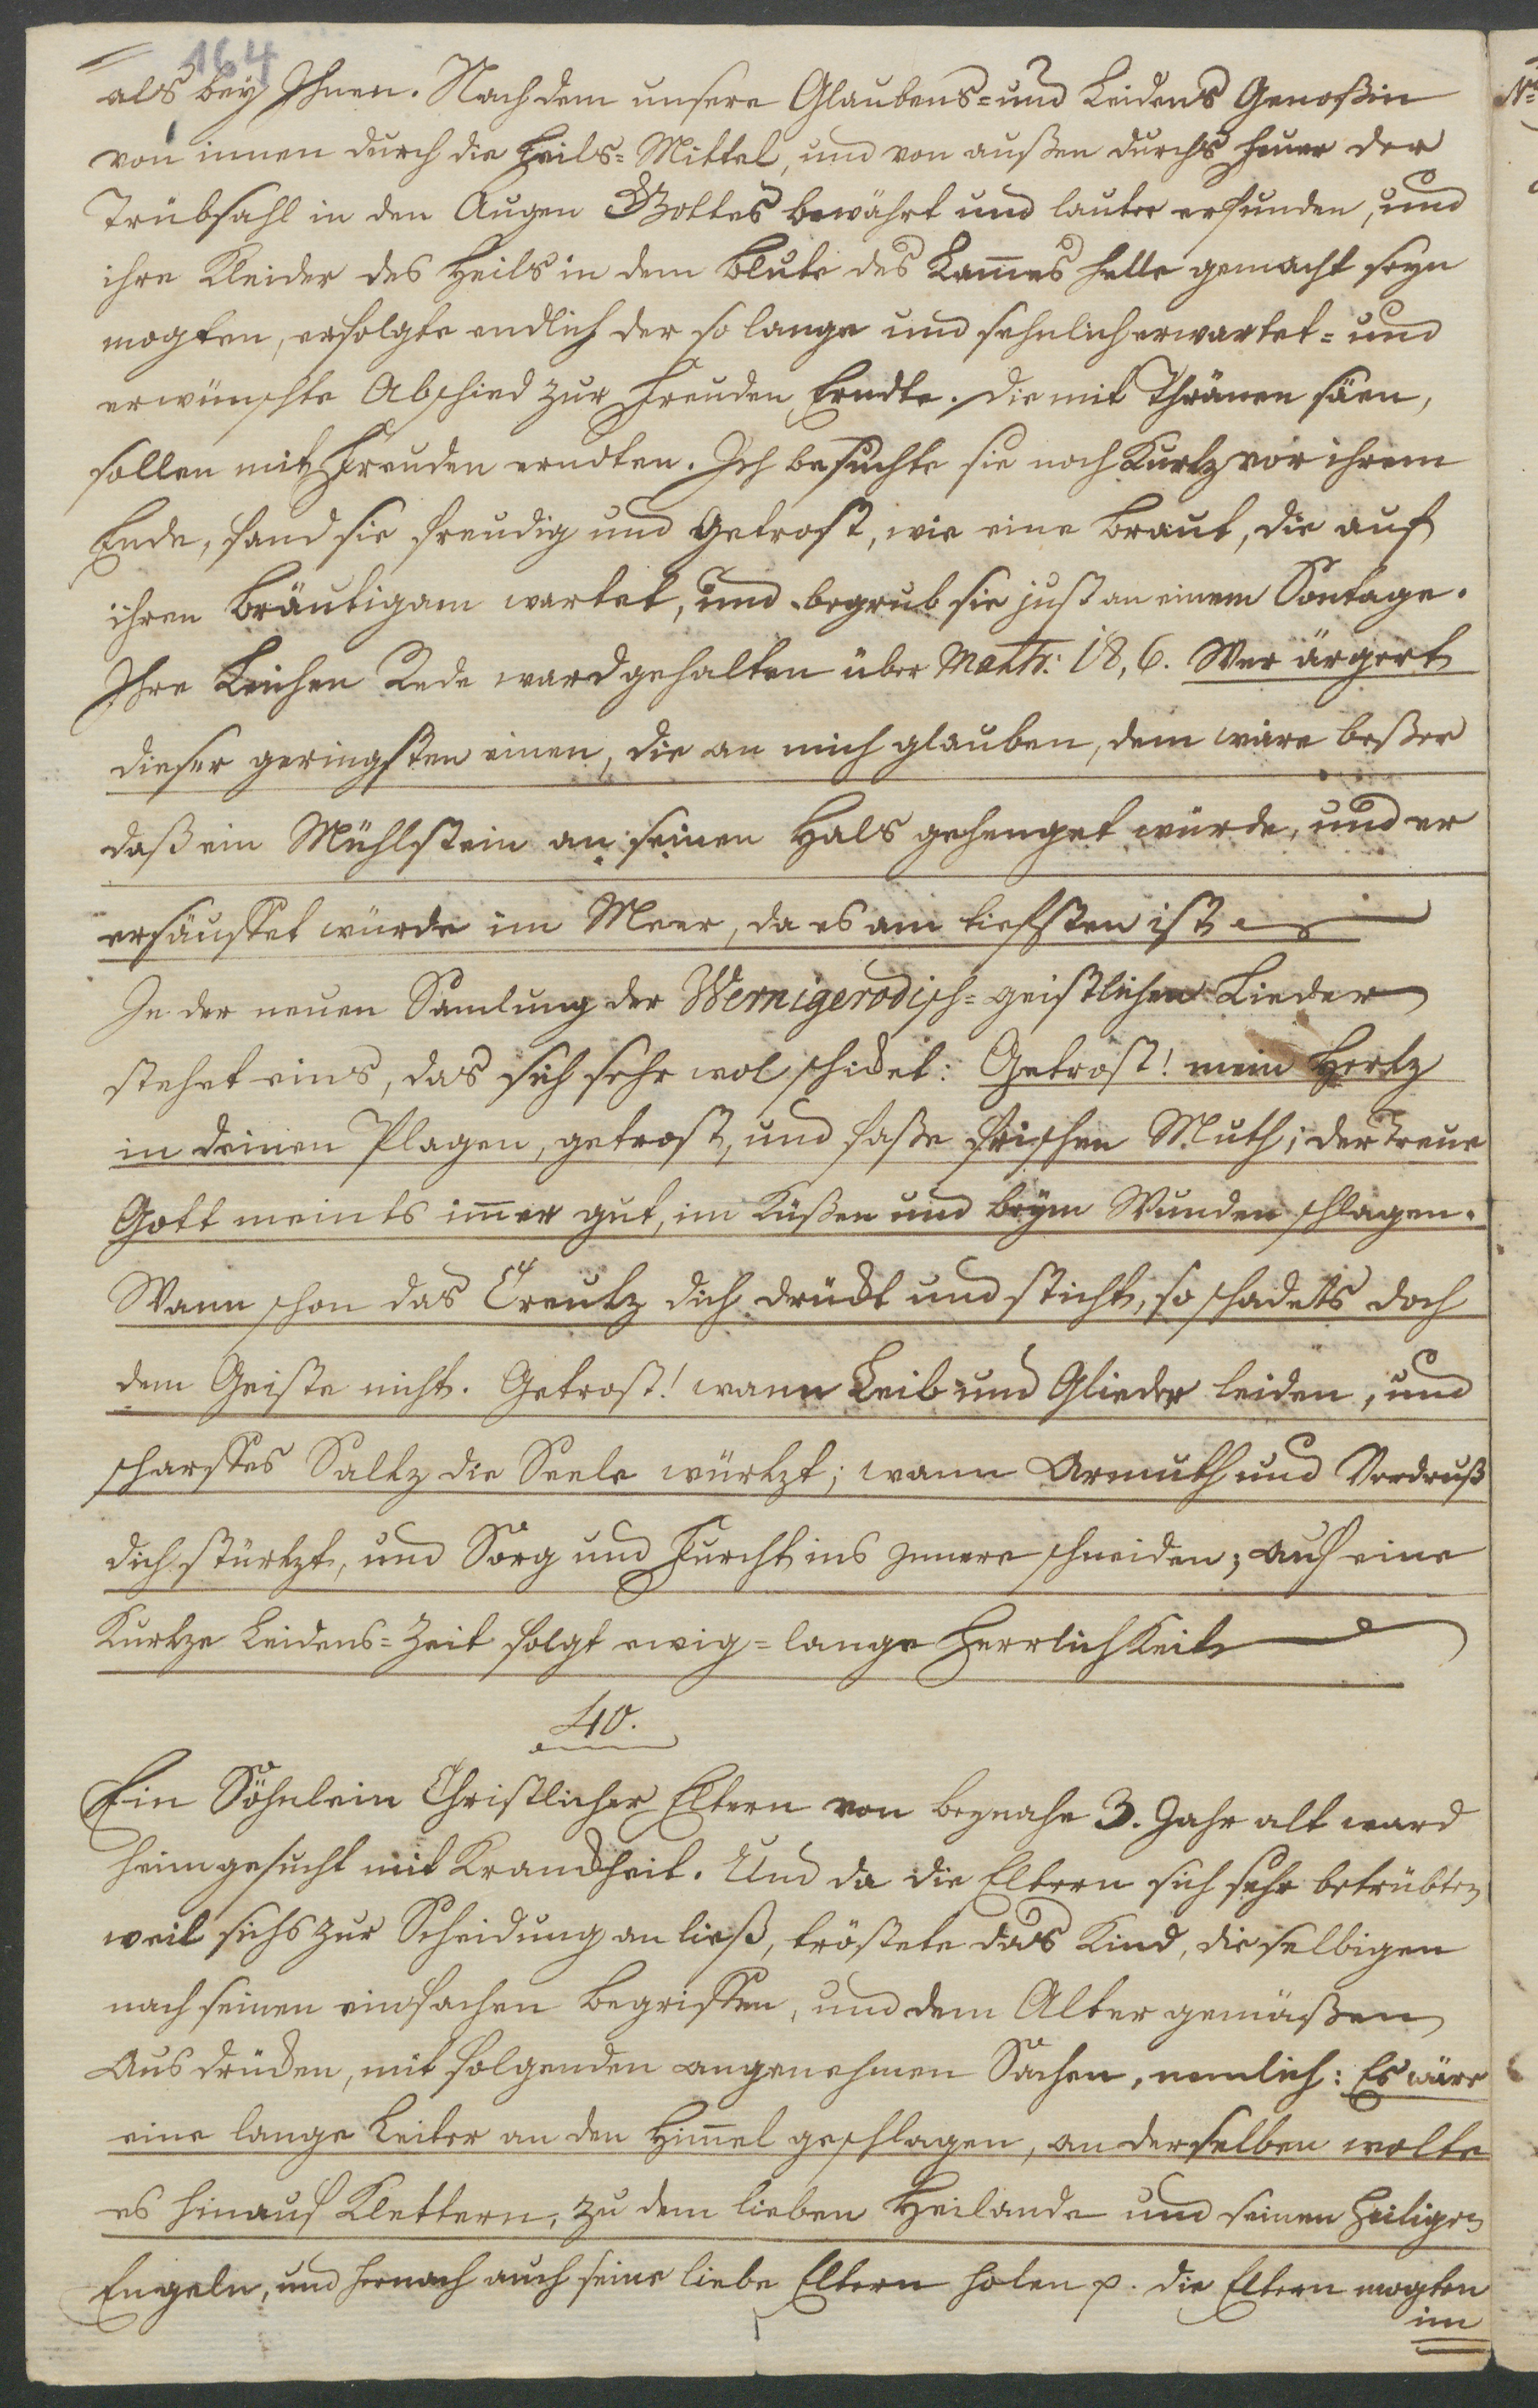 164
als bey Ihnen. Nachdem unsere Glaubens= und Leidens Genoßin
von innen durch die Heils=Mittel, und von außen durchs Feuer der
Trübsahl in den Augen Gottes bewährt und lauter erfunden, und
ihre Kleider des Heils in dem Blute des Lam̄es helle gemacht seyn
mogten, erfolgte endlich der so lange und sehnlich erwartet= und
erwünschte Abschied zur Freuden Erndte. Die mit Thränen säen,
sollen mit Freuden erndten. Ich besuchte sie noch Kurtz vor ihrem
Ende, fand sie freudig und getrost, wie eine Braut, die auf
ihren Bräutigam wartet, und begrub sie just an einem Sontage.
Ihre Leichen Rede ward gehalten über Matth: 18, 6. Wer ärgert
dieser geringsten einen, die an mich glauben, dem wäre beßer
daß ein Mühlstein an seinen Hals gehenget würde, und er
ersäuffet würde im Meer, da es am tieffsten ist
In der neuen Samlung der Wernigerodisch=geistlichen Lieder
stehet eins, das sich sehr wol schicket: Getrost! mein Hertz
in deinen Plagen, getrost, und faße frischen Muth; der Treue
Gott meints im̄er gut, im Küßen und beym Wunden schlagen.
Wann schon das Creutz dich drückt und sticht, so schadets doch
dem Geiste nicht. Getrost! wann Leib und Glieder leiden, und
scharffes Saltz die Seele würtzt; wann Armuth und Verdruß
dich stürtzt, und Sorg und Furcht ins Innere schneiden; auf eine
Kurtze Leidens=Zeit folgt ewig=lange Herrlichkeit
40.
Ein Söhnlein Christlicher Eltern von beynahe 3. Jahr alt ward
heimgesucht mit Kranckheit. Und da die Eltern sich sehr betrübten
weil sichs zur Scheidung an ließ, tröstete das Kind, die selbigen
nach seinen einfachen Begriffen, und dem Alter gemäßen
Ausdrücken, mit folgenden angenehmen Sachen, nemlich: Es wäre
eine lange Leiter an den Him̄el geschlagen, an derselben wolte
es hinauf Klettern, zu dem lieben Heilande und seinen heiligen
Engeln, und hernach auch seine liebe Eltern holen p. die Eltern mogten
im